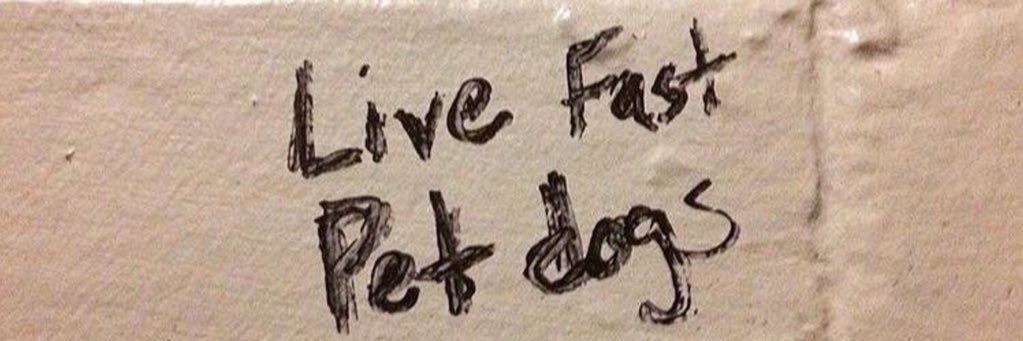 Live Fast
Pet dogs